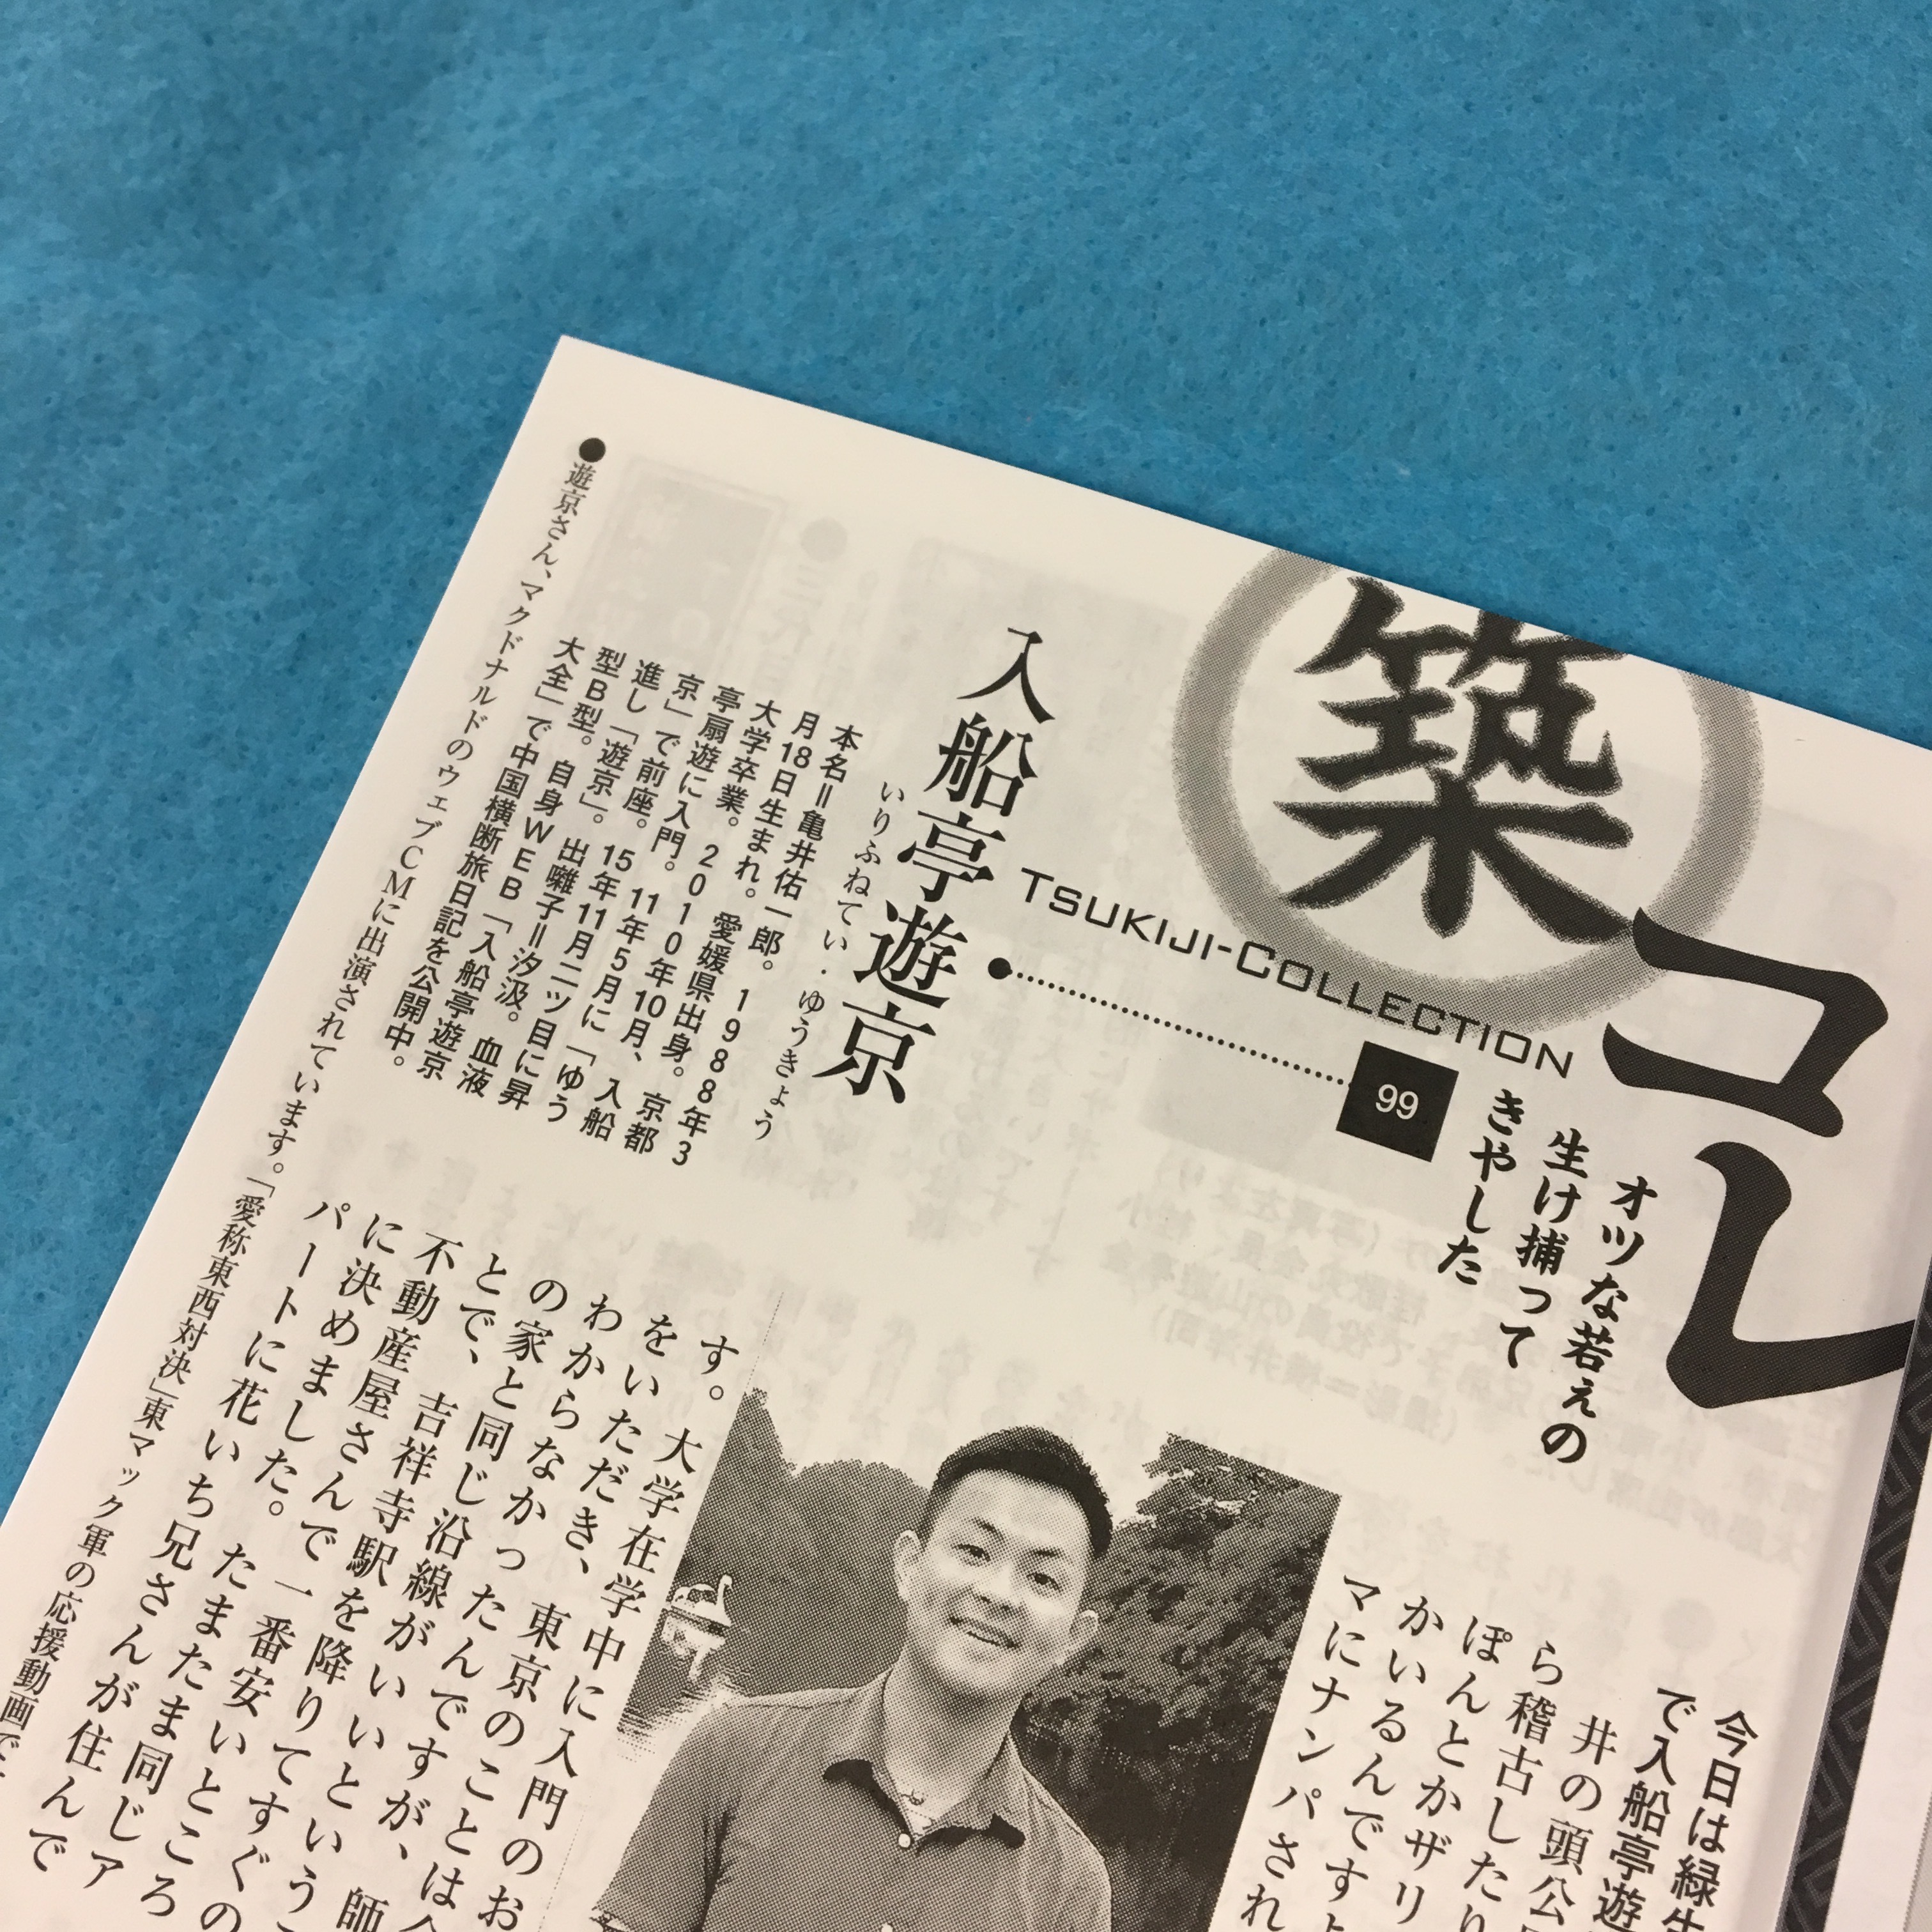 築コレ
TSUKIJI-COLLECTION
オツな若ぇの
生け捕って
きやした
99
入船亭遊京
いりふねてい・ゆうきょう
本名＝亀井佑一郎。1988年3
月18日生まれ。愛媛県出身。京都
大学卒業。2010年10月、入船
亭扇遊に入門。11年5月に「ゆう
京」で前座。15年11月二ツ目に昇
進し「遊京」。出囃子＝汐汲。血液
型B型。自身WEB「入船亭遊京
大全」で中国横断旅日記を公開中。
今日は緑
で入船亭遊
井の頭公
ら稽古したり
ぽんとかザリ
かいるんですよ
マにナンパされ
す。大学在学中に入門のお
をいただき、東京のことは
わからなかったんですが、師
の家と同じ沿線がいいという
とで、吉祥寺駅を降りてすぐの
不動産屋さんで一番安いところ
に決めました。たまたま同じア
パートに花いち兄さんが住んで
●遊京さん、マクドナルドのウェブCMに出演されています。「愛称東西対決」東マック軍の応援動画で